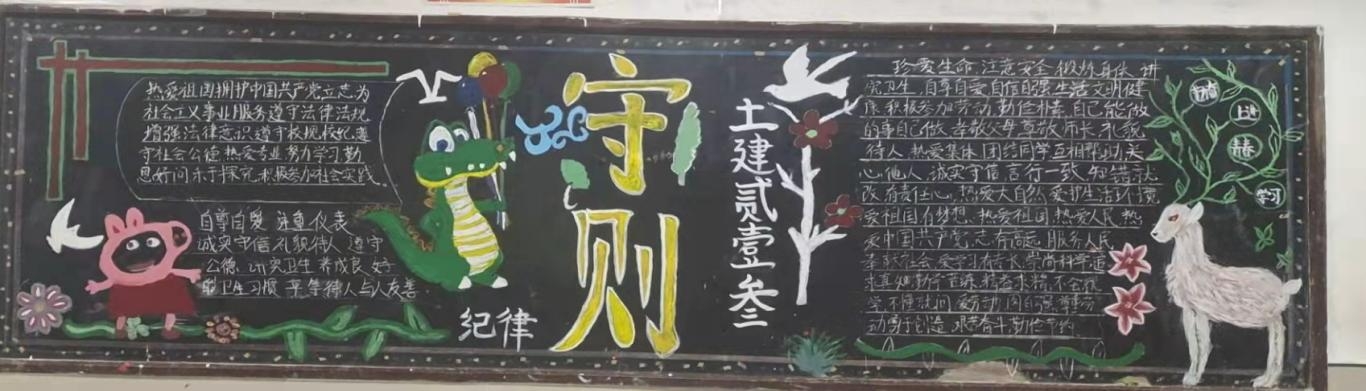 热爱祖国拥护中国共产党立志为
社会主义事业服务遵守法律法规
增强法律意识遵守校规校纪遵
守社会公德热爱专业努力学习勤
思好问乐于探究积极参加社会实践
自尊自爱 注重仪表
诚实守信礼貌待人 遵守
公德 讲究卫生 养成良好
的卫生习惯 平等待人与人友善
纪律
守则
土建贰壹叁
珍爱生命 注意安全 锻炼身体 讲
究卫生 自尊自爱自信自强生活文明健
康 积极参加劳动 勤俭朴素 自己能做
的事自己做 孝敬父母尊敬师长 礼貌
待人 热爱集体 团结同学互相帮助关
心他人 诚实守信 言行一致 知错就
改有责任心 热爱大自然 爱护生活环境
爱祖国有梦想 热爱祖国热爱人民 热
爱中国共产党 志存高远 服务人民
奉献社会 爱学习有专长 崇尚科学追
求真知 勤学
学 不懂就问 爱劳动
动勇于创造
上进
学习